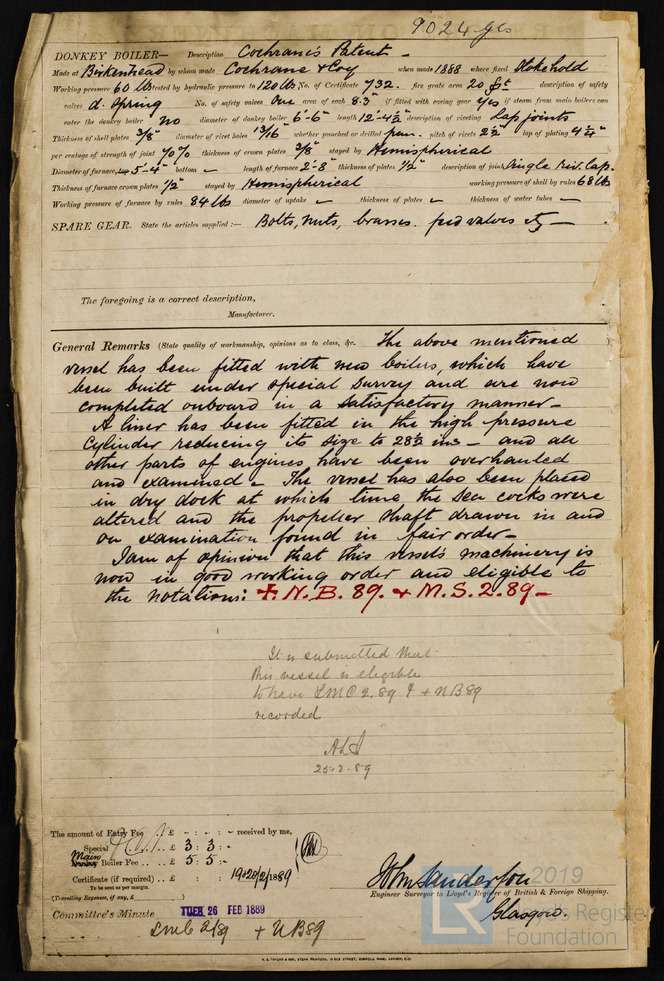 9024 gls
DONKEY BOILER— Description Cochrane's Patent —
Made at Birkenhead by whom made Cochrane & Coy when made 1888 where fixed Stokehold
Working pressure 60 lbs tested by hydraulic pressure to 120 lbs No. of Certificate 732. fire grate area 20 ft description of safety
valves d. Spring No. of safety valves One area of each 8.3" if fitted with easing gear yes if steam from main boilers can
enter the donkey boiler no diameter of donkey boiler 6'-6" length 12'-4½" description of riveting Lap joints
Thickness of shell plates 3/8" diameter of rivet holes 13/16" whether punched or drilled pun. pitch of rivets 2½" lap of plating 4¼"
per centage of strength of joint 70% thickness of crown plates 3/8" stayed by Hemispherical
Diameter of furnace, 5'-4" bottom – length of furnace 2'-8" thickness of plates 1/2" description of joint Single Riv. Lap.
Thickness of furnace crown plates 1/2" stayed by Hemispherical working pressure of shell by rules 68 lbs
Working pressure of furnace by rules 84 lbs diameter of uptake – thickness of plates – thickness of water tubes –
SPARE GEAR. State the articles supplied :— Bolts, nuts, brasses. feed valves etc —
The foregoing is a correct description,
Manufacturer.
General Remarks (State quality of workmanship, opinions as to class, &c. The above mentioned
vessel has been fitted with new boilers, which have
been built under special survey and are now
completed onboard in a satisfactory manner—
A liner has been fitted in the high pressure
Cylinder reducing its size to 28½ ins — and all
other parts of engines have been overhauled
and examined — The vessel has also been placed
in dry dock at which time the sea cocks were
altered and the propeller shaft drawn in and
on examination found in fair order—
I am of opinion that this vessel's machinery is
now in good working order and eligible to
the notations: +. N.B. 89. & M.S. 2.89—
It is submitted that
this vessel is eligible
to have LMC 2.89 & + NB89
recorded
25.2.89
The amount of Entry Fee .. £ - : - : - received by me,
Special £ 3 : 3 : -
Main Boiler Fee .. .. £ 5 : 5 : -
Certificate (if required) .. £ : : 19 & 20/2/1889
To be sent as per margin.
(Travelling Expenses, if any, £ )
John Sanderson
Engineer Surveyor to Lloyd's Register of British & Foreign Shipping.
Glasgow.
Committee's Minute TUES 26 FEB 1889
LMC 2/89 + NB89
2019
LR
Lloyd's Register
Foundation